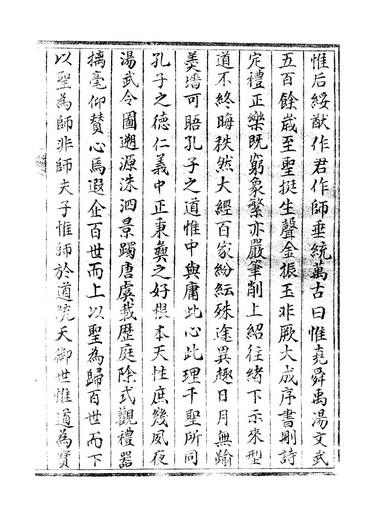 惟后綏猷作君作師垂統萬古曰惟堯舜禹湯文武
五百餘歳至聖挺生聲金振玉非厥大成序書刪詩
定禮正樂既窮象繫亦嚴筆削上紹往緒下示來型
道不終晦秩然大經百家紛紜殊途異趣日月無踰
羙墻可晤孔子之道惟中與庸此心此理千聖所同
孔子之德仁義中正秉彝之好根本天性庶幾夙夜
湯武令圖遡源洙泗景躅唐虞載歷庭除式觀禮器
摛毫仰賛心焉遐企百世而上以聖為歸百世而下
以聖為師非師夫子惟師於道統天御世惟道為寳